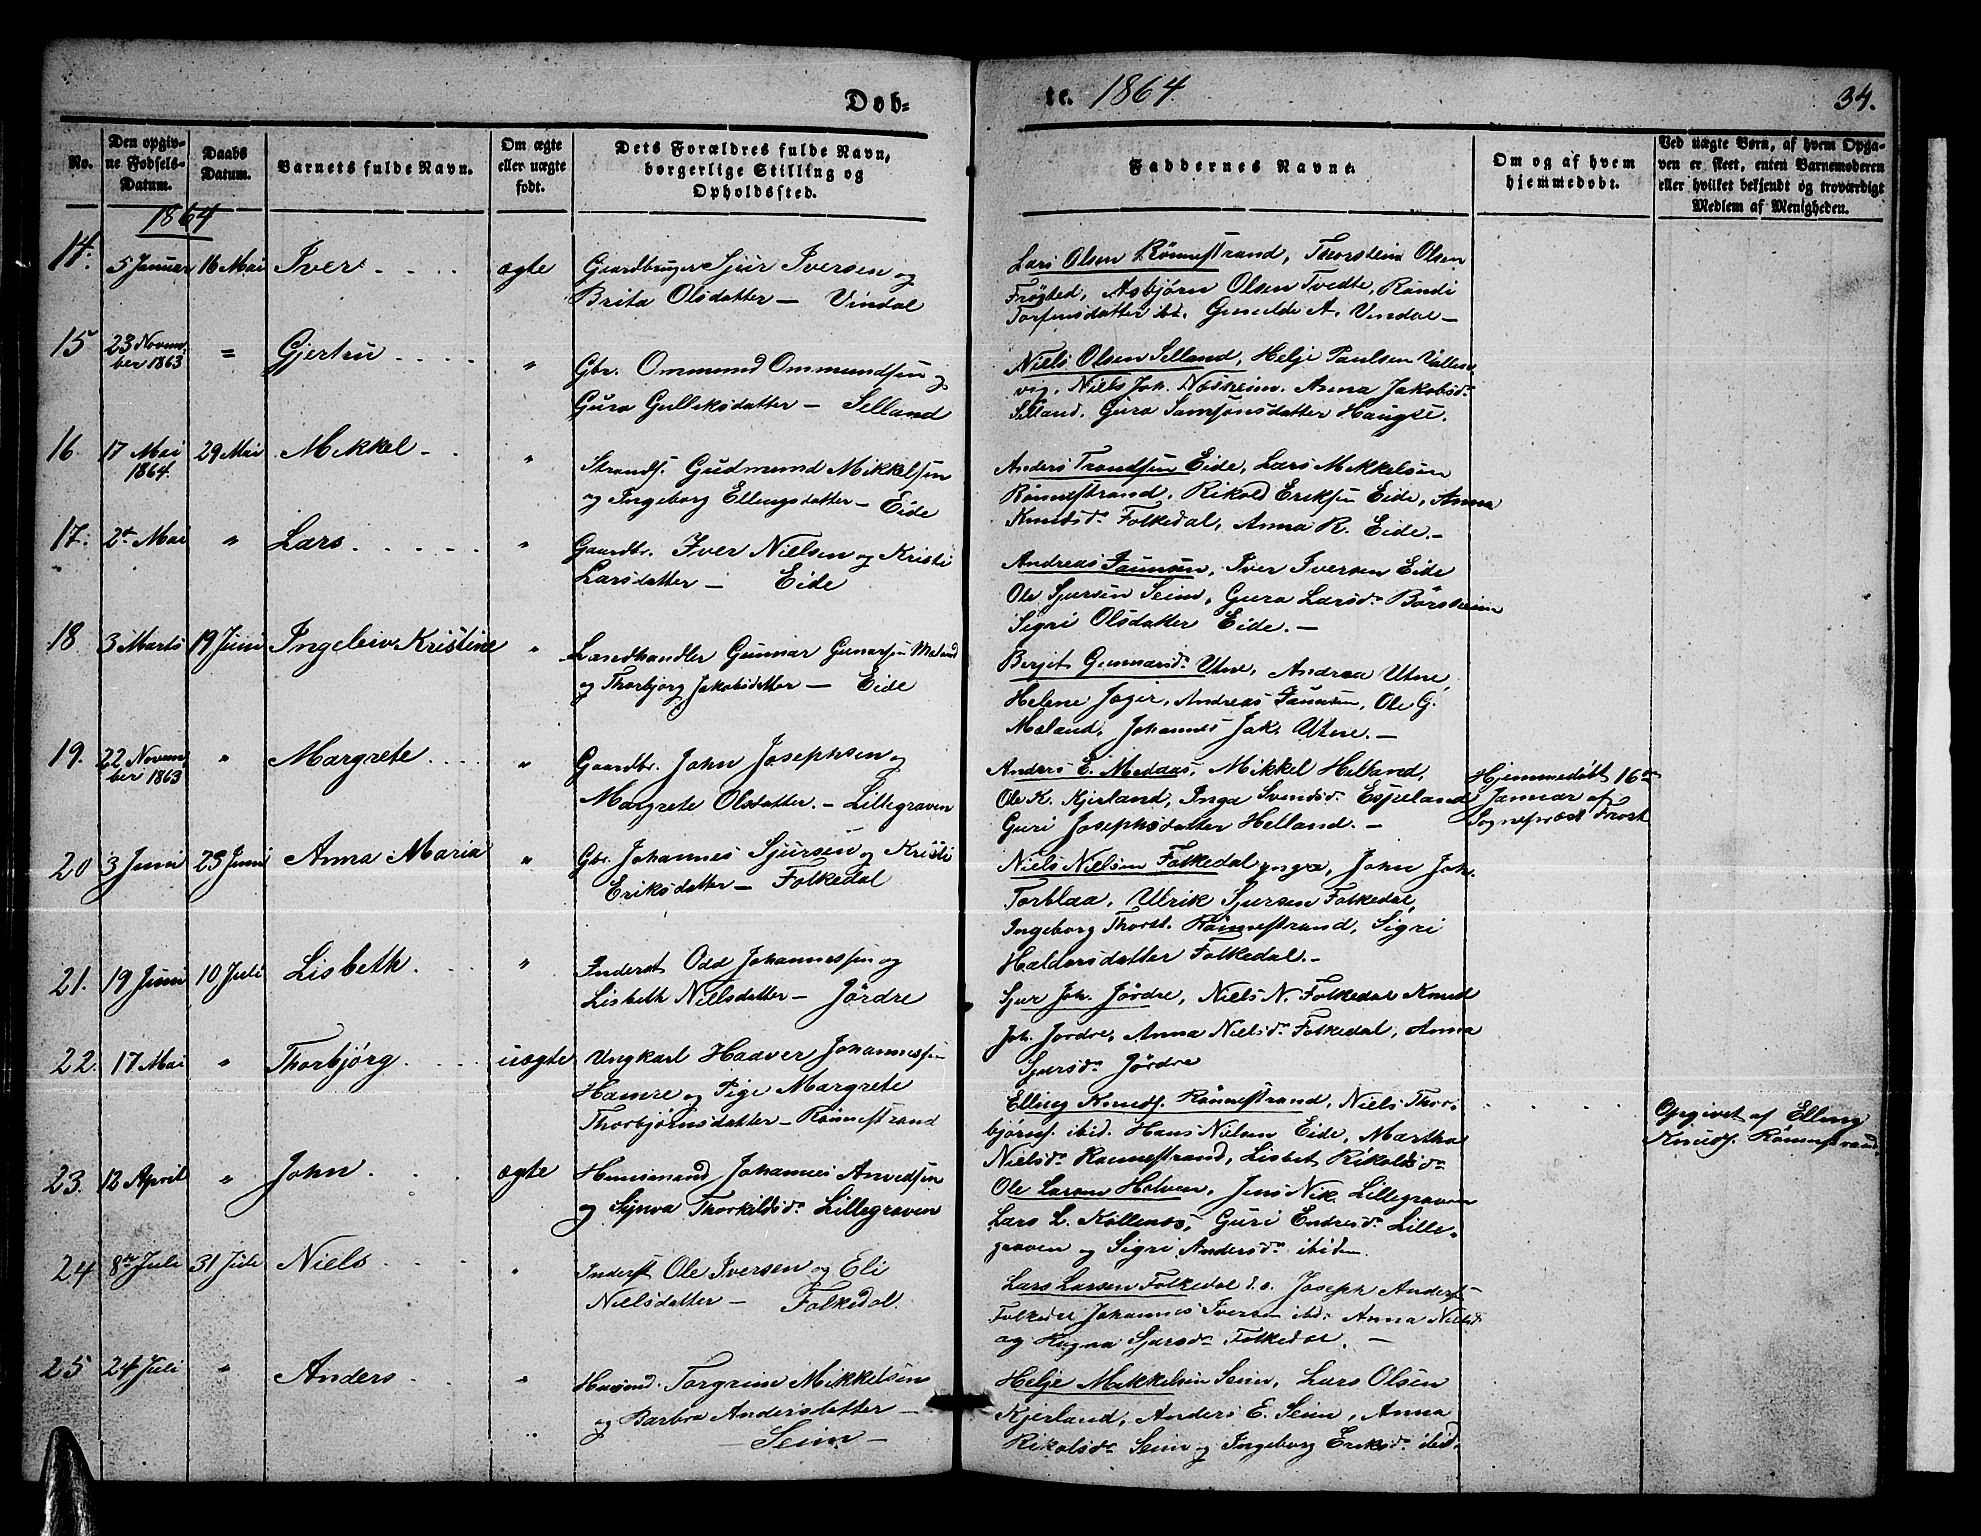 Dob-
te. 1864
34.
No.
Den opgiv-
ne Fødsels-
Datum.
Daabs
Datum.
Barnets fulde Navn.
Om ægte
eller uægte
født.
Dets Forældres fulde Navn,
borgerlige Stilling og
Opholdssted.
Faddernes Navne.
Om og af hvem
hjemmedøbt.
Ved uægte Børn, af hvem Opga-
ven er skeet, enten Barnemoderen
eller hvilket bekjendt og troværdigt
Medlem af Menigheden.
1864
14. 5 Januar 16 Mai Iver ægte
Gaardbruger Sjur Iversen og
Brita Olsdatter — Vindal
Lars Olsen Rönnestrand, Thorstein Olsen
Frögted, Asbjörn Olsen Tvedte, Randi
Torfinsdatter ibt. Gunilde A. Vindal —
15 23 Novem-
ber 1863 = Gjertru "
Gbr. Ommund Ommundsen og
Guro Gulleksdatter — Selland
Niels Olsen Selland, Helje Paulsen Vallen-
vig, Niels Joh. Næsheim. Anna Jakobsd.
Selland. Guro Samsonsdatter Haugse.
16 17 Mai
1864. 29 Mai Mikkel "
Strands. Gudmund Mikkelsen
og Ingeborg Ellingsdatter — Eide
Anders Trondsen Eide, Lars Mikkelsen
Rönnestrand. Rikold Eriksen Eide, Anna
Knudsd. Folkedal, Anna R. Eide. —
17. 2de Mai " Lars "
Gaardbr. Iver Nielsen og Kristi
Larsdatter — Eide
Andreas Faunsen, Iver Iversen Eide
Ole Sjursen Seim, Guro Larsd. Börsheim
Sigri Olsdatter Eide. —
18 3 Marts 19 Juni Ingeleiv Kristine "
Landhandler Gunnar Gunarsen Maland
og Thorbjørg Jakobsdatter — Eide
Berjit Gunnarsd. Utne, Andrea Utne,
Helene Jager, Andreas Faunsen, Ole G.
Maland, Johannes Jak. Utne. —
19. 22 Novem-
ber 1863 " Margrete "
Gaardbr. John Josephsen og
Margrete Olsdatter. — Lillegraven
Anders E. Medaas, Mikkel Helland,
Ole K. Kjerland, Inga Svendsd. Espeland
Guri Josephsdatter Helland. —
Hjemmedøbt 16de
Januar af
Sognepræst Frost
20 3 Juni 25 Juni Anna Maria "
Gbr. Johannes Sjursen og Kristi
Eriksdatter — Folkedal
Niels Nielsen Folkedal yngre, John Joh.
Torblaa, Ulrik Sjursen Folkedal,
Ingeborg Thorst. Rönnestrand, Sigri
Haldorsdatter Folkedal. —
21. 19 Juni 10 Juli Lisbeth "
Inderst Odd Johannessen og
Lisbeth Nielsdatter — Jördre
Sjur Joh. Jördre, Niels N. Folkedal Knud
Joh. Jordre, Anna Nielsd. Folkedal, Anna
Sjursd. Jördre
22. 17 Mai " Thorbjörg uægte
Ungkarl Haaver Johannessen
Hamre og Pige Margrete
Thorbjörnsdatter — Rönnestrand
Elling Knuds. Rönnestrand, Niels Thor-
björns. ibid. Hans Nielsen Eide, Martha
Nielsd. Rönnestrand, Lisbet Rikoldsd.
Opgivet af Elling
Knuds. Rönnestrand
23. 12 April " John ægte
Huusmand Johannes Arvedsen
og Synva Thorkildsd. Lillegraven
Ole Larsen Halven, Jens Nik. Lillegraven
Lars L. Kollenös, Guri Endresd. Lille-
graven og Sigri Andersd. ibidem.
24 8de Juli 31 Juli Niels "
Inderst Ole Iversen og Eli
Nielsdatter — Folkedal.
Lars Larsen Folkedal Joseph Anders.
Folkedal Johannes Iversen ibid. Anna Nielsd.
og Ragna Sjursd. Folkedal. —
25 24 Juli " Anders "
Huusmd. Torgrim Mikkelsen
og Barbra Andersdatter —
— Seim —
Helje Mikkelsen Seim, Lars Olsen
Kjerland, Anders E. Seim, Anna
Rikolsd. Seim og Ingeborg Eriksd. ibid.